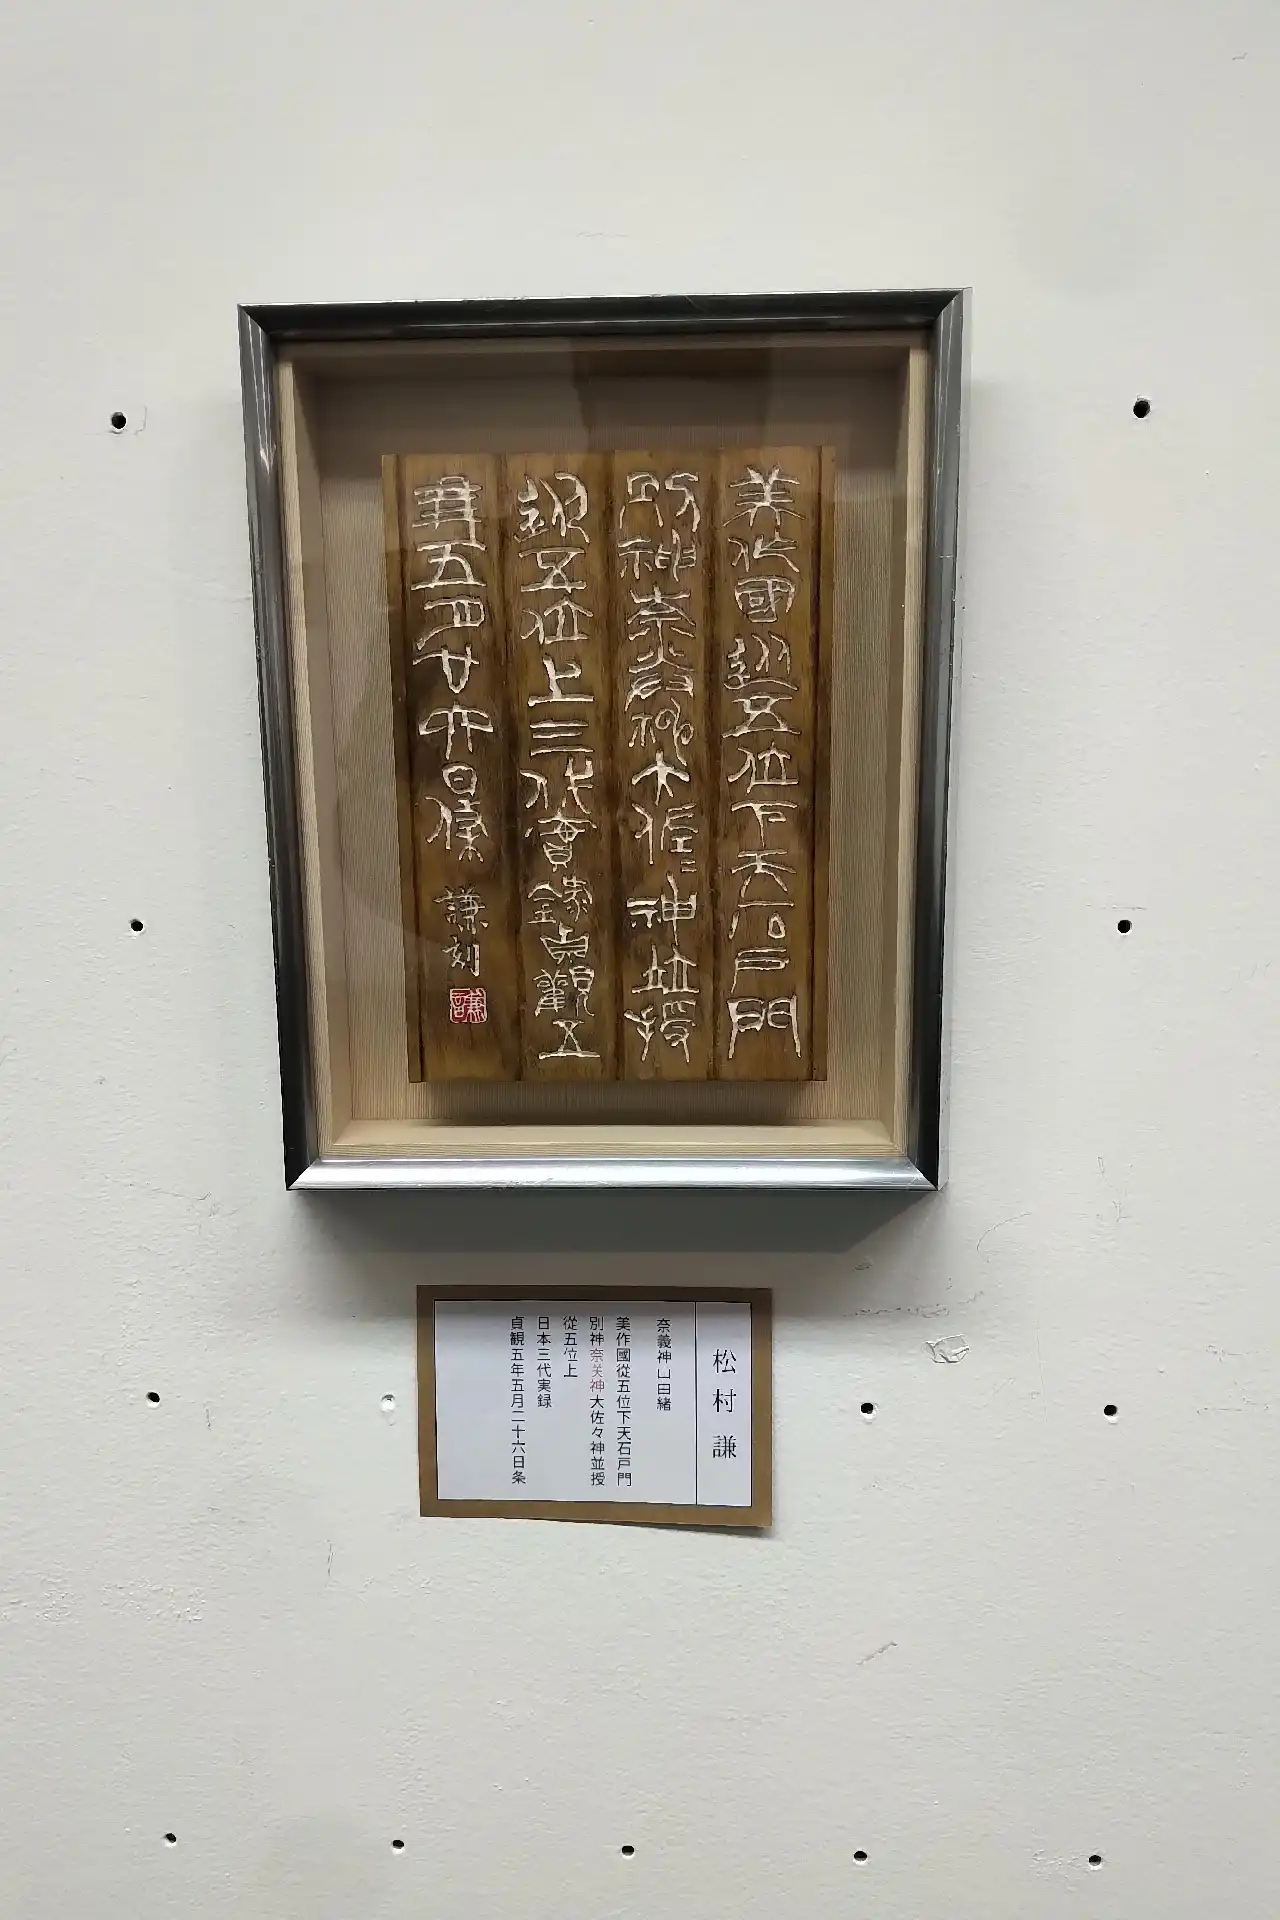 美作國從五位下天石戸門
別神奈关神大佐々神並授
從五位上三代實錄貞觀五
年五月廿六日條
謙刻
謙
松村謙
奈義神山由緒
美作國從五位下天石戸門
別神奈关神大佐々神並授
從五位上
日本三代実録
貞観五年五月二十六日条